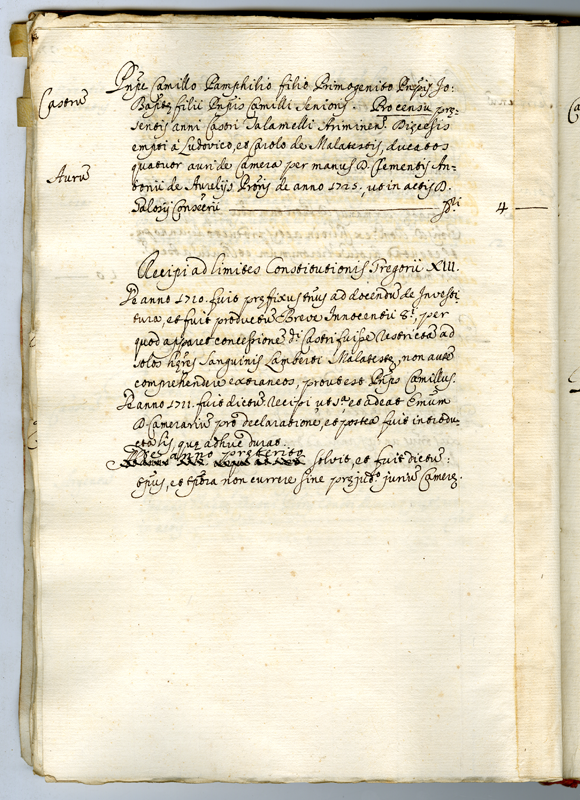 Castrũ
Aurũ
Pñpe Camillo Pamphilio filio Primogenito Pñpis Jo:
Bapṫe filii Pñpis Camilli Senioris. Pro censu prę-
sentis anni Castri Talamelli Ariminen: Dięcesis
empti a Ludovico, et Carolo de Malatestis, ducatos
quatuor auri de Camera per manus D. Clementis An-
tonii de Aurelijs Proris de anno 1725, ut in actis D.
4
Recipi ad limites Constitutionis Gregorii XIII.
De anno 1710. fuit pręfixus tñus ad docendũ de Investi-
tura, et fuit productũ Breve Innocentii 8.i, per
quod apparet concessionẽ di Castri fuisse restrictã ad
solos hęres Sanguinis Lamberti Malatestę, non autẽ
comprehendere extraneos, prout est Pñps Camillus.
De anno 1711. fuit dictũ Recipi ut sa. et adeat Emum̃
D. Camerariũ pro declaratione, et postea fuit introdu-
cta lis, quę adhuc durat.
De anno pręterito solvit, et fuit dictũ:
non currere sine pręjudo. juriũ Camerę.